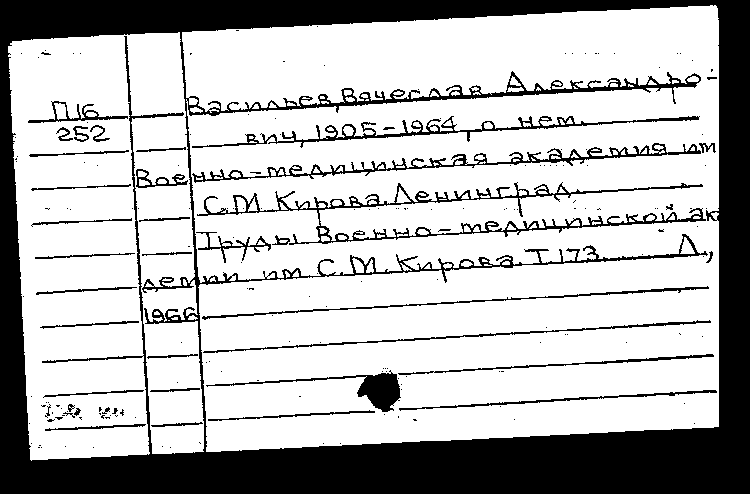 П16
252
Васильев, Вячеслав Александро-
вич, 1905-1964, о нем.
Военно-медицинская академия им
С.М. Кирова. Ленинград.
Труды Военно-медицинской ака
демии им С.М. Кирова. Т. 173. Л.,
1966